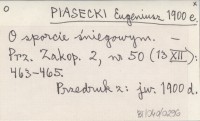 PIASECKI Eugeniusz 1900 e.
O sporcie śniegowym. —
Prz. Zakop. 2, nr 50 (13 XII):
463-465.
Przedruk z: jw. 1900 d.